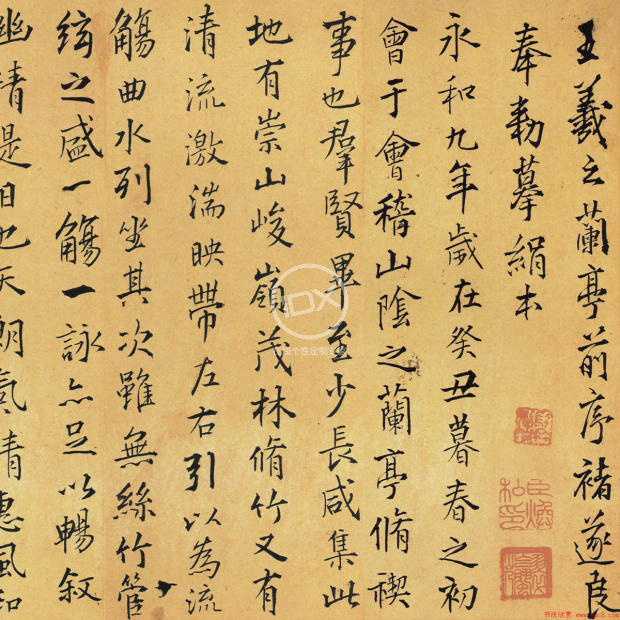 王羲之蘭亭前序褚遂良
奉勑摹絹本
永和九年歲在癸丑暮春之初
會于會稽山陰之蘭亭脩禊
事也羣賢畢至少長咸集此
地有崇山峻嶺茂林脩竹又有
清流激湍映帶左右引以為流
觴曲水列坐其次雖無絲竹管
絃之盛一觴一詠亦足以暢敘
幽情是日也天朗氣清惠風和
IDX